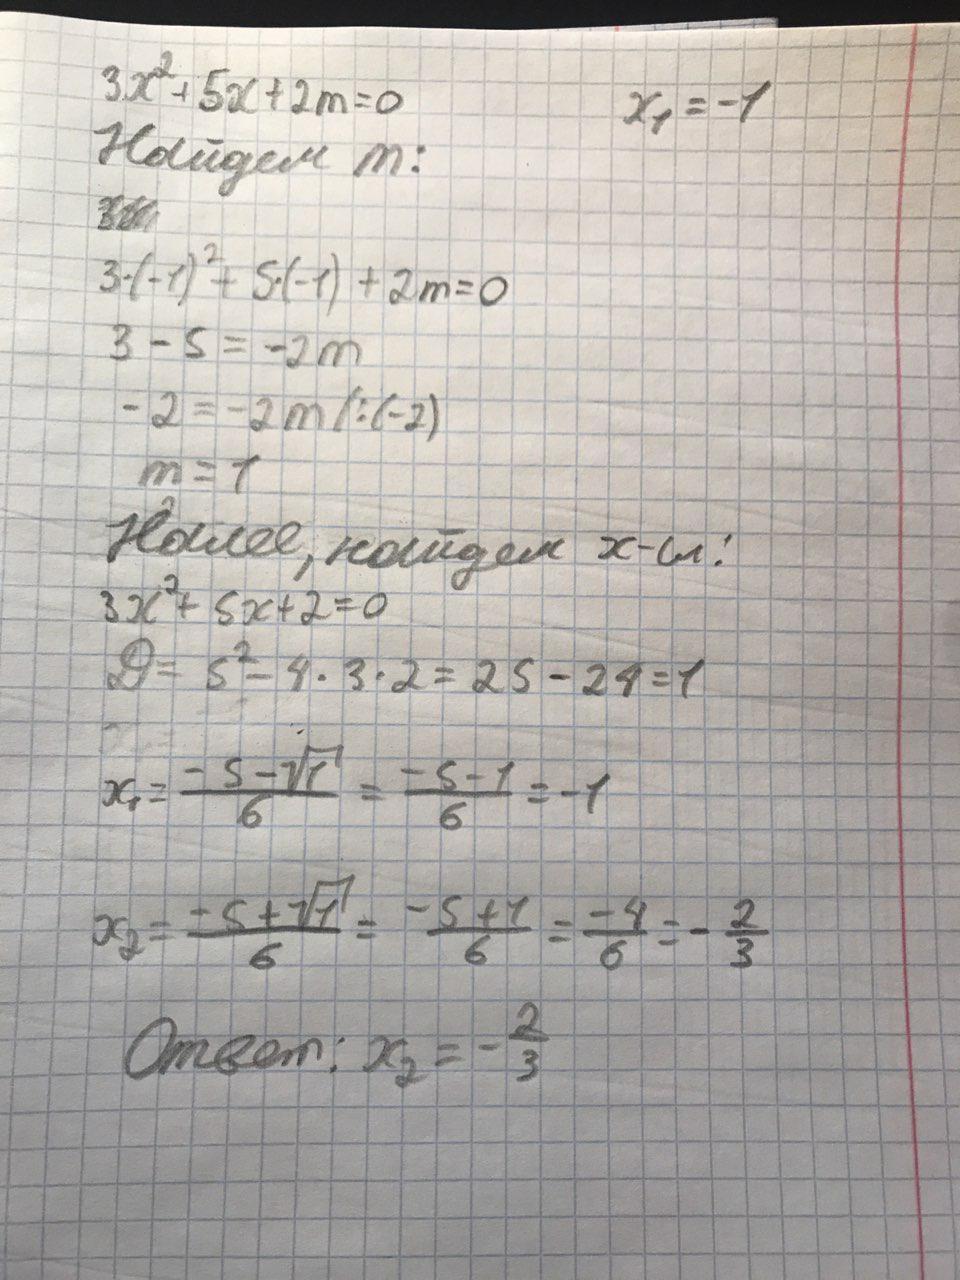 3x²+5x+2m=0 x₁=-1
Найдем m:
3·(-1)²+5·(-1)+2m=0
3-5=-2m
-2=-2m/:(-2)
m=1
Далее, найдем x-ы:
3x²+5x+2=0
D=5²-4·3·2=25-24=1
x₁=(-5-√1)/6=(-5-1)/6=-1
x₂=(-5+√1)/6=(-5+1)/6=-4/6=-2/3
Ответ: x₂=-2/3